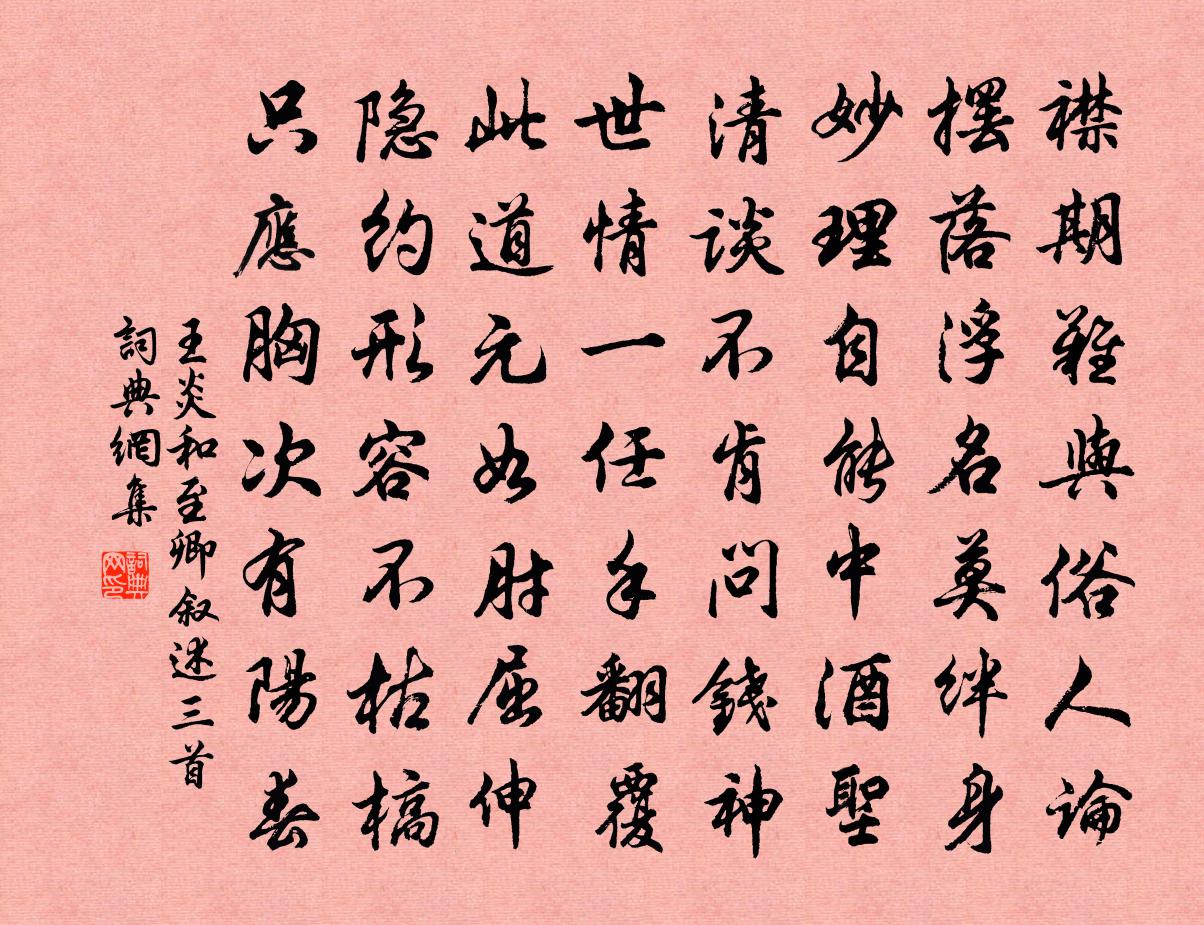 襟期難與俗人論
擺落浮名莫絆身
妙理自能中酒聖
清談不肯問錢神
世情一任手翻覆
此道元如肘屈伸
隐約形容不枯槁
只應胸次有陽春
王炎和至卿叙述三首
詞典網集
詞典
网印